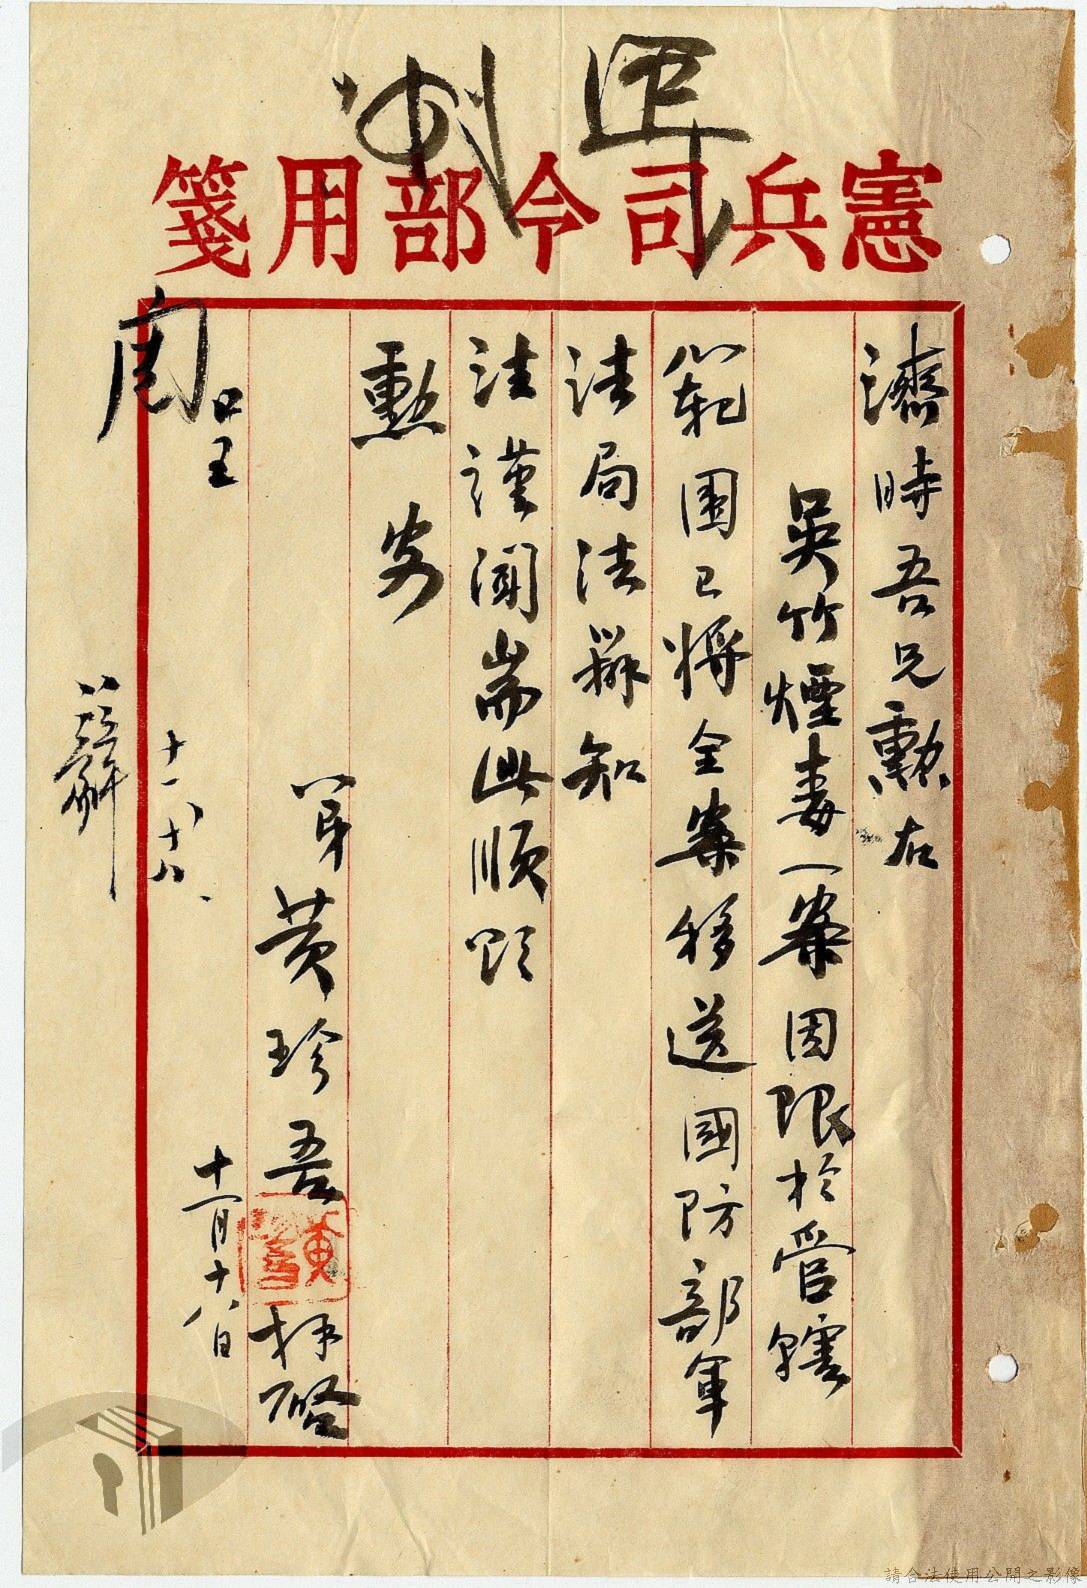 憲兵司令部用箋
濟時吾兄勳右
吳竹煙毒一案因限於管轄
範圍已將全案移送國防部軍
法局法辦知
注謹聞耑此順頌
勳安
弟黃珍吾拜啓
十一月十八日
周
呈
十一、十八、
請合法使用公開之影像